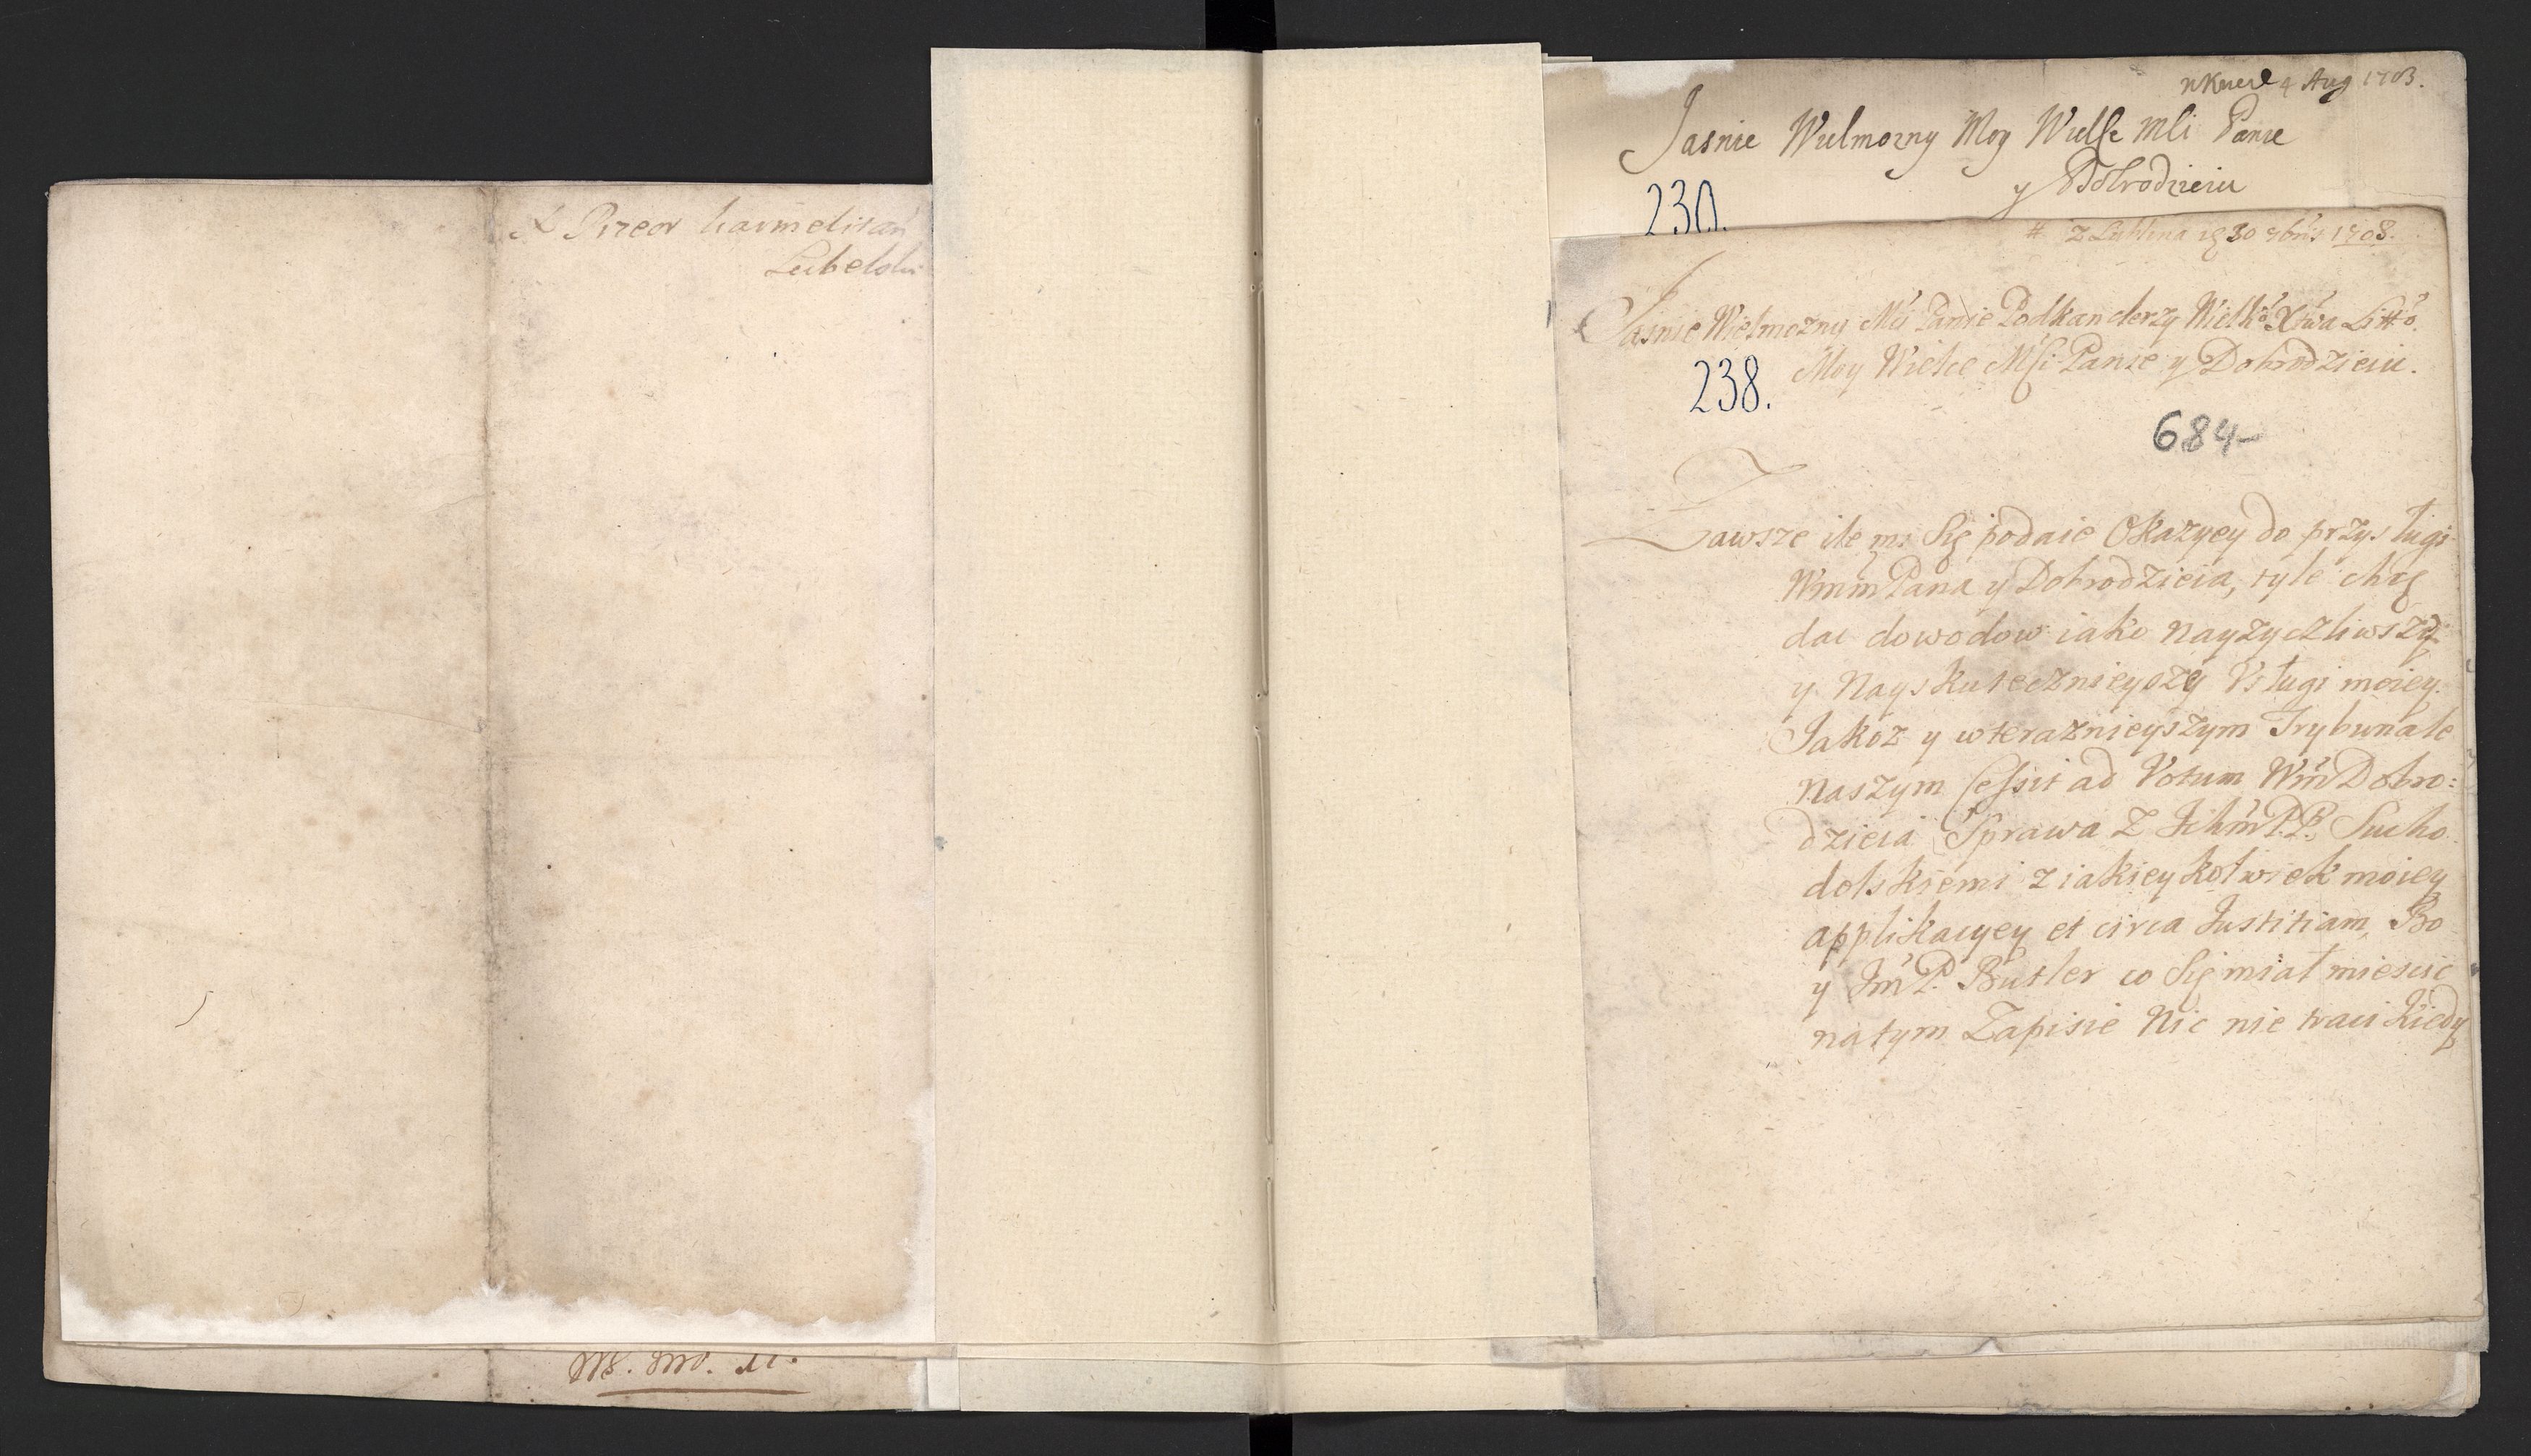 X Przeor karmelitań
Lubelski
W. W. M.
4 Aug 1703.
Jasnie Wielmozny Moy Wielce Mći Panie
y Dobrodzieiu
230.
# z Lublina 30 1708.
Jasnie Wielmozny Mći Panie Podkanclerzy Wielk° Xtwa Litt°.
Moy Wielce Mści Panie y Dobrodzieiu.
238.
684-
Zawsze ile mi się podaie Okazyey do przysługi
WmmPana y Dobrodzieia, tyle chcę
dac dowodow iako nayzyczliwszey
y Nayskutecznieyszey Usługi moiey.
Jakoz y w teraznieyszym Trybunale
Naszym cessit ad Votum Wm̃Dobro:
dzieia Sprawa z Ichm̃P.P. Sucho
dolskiemi z iakieykolwiek moiey
applikacyey et circa Justitiam, Bo
y Jm̃P. Butler co się miał miescic
na tym Zapisie Nic nie traci Kiedy